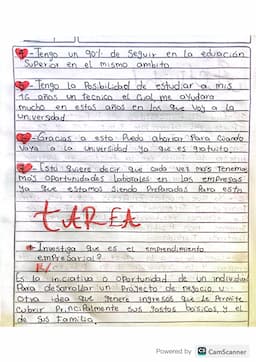 -Tengo un 90% de seguir en la educación
superior en el mismo ambito
-Tengo la Posibilidad de estudiar a mis
16 años un tecnico el cual me ayudara
mucho en estos años en los que voy a la
universidad
-Gracias a esto Puedo ahorrar Para cuando
vaya a la universidad ya que es gratuito.
-Esto quiere decir que cada vez mas tenemos
Mas oportunidades laborales en las empresas
ya que estamos siendo Preparados Para esto
tAREA
Investiga que es el emprendimiento
empresarial?
R/
Es la iniciativa o oportunidad de un individuo
Para desarrollar un Proyecto de negocio, u
otra idea que genere ingresos que le Permite
cubrir Principalmente sus gastos basicos, y el
de sus Familia.
Powered by CS CamScanner